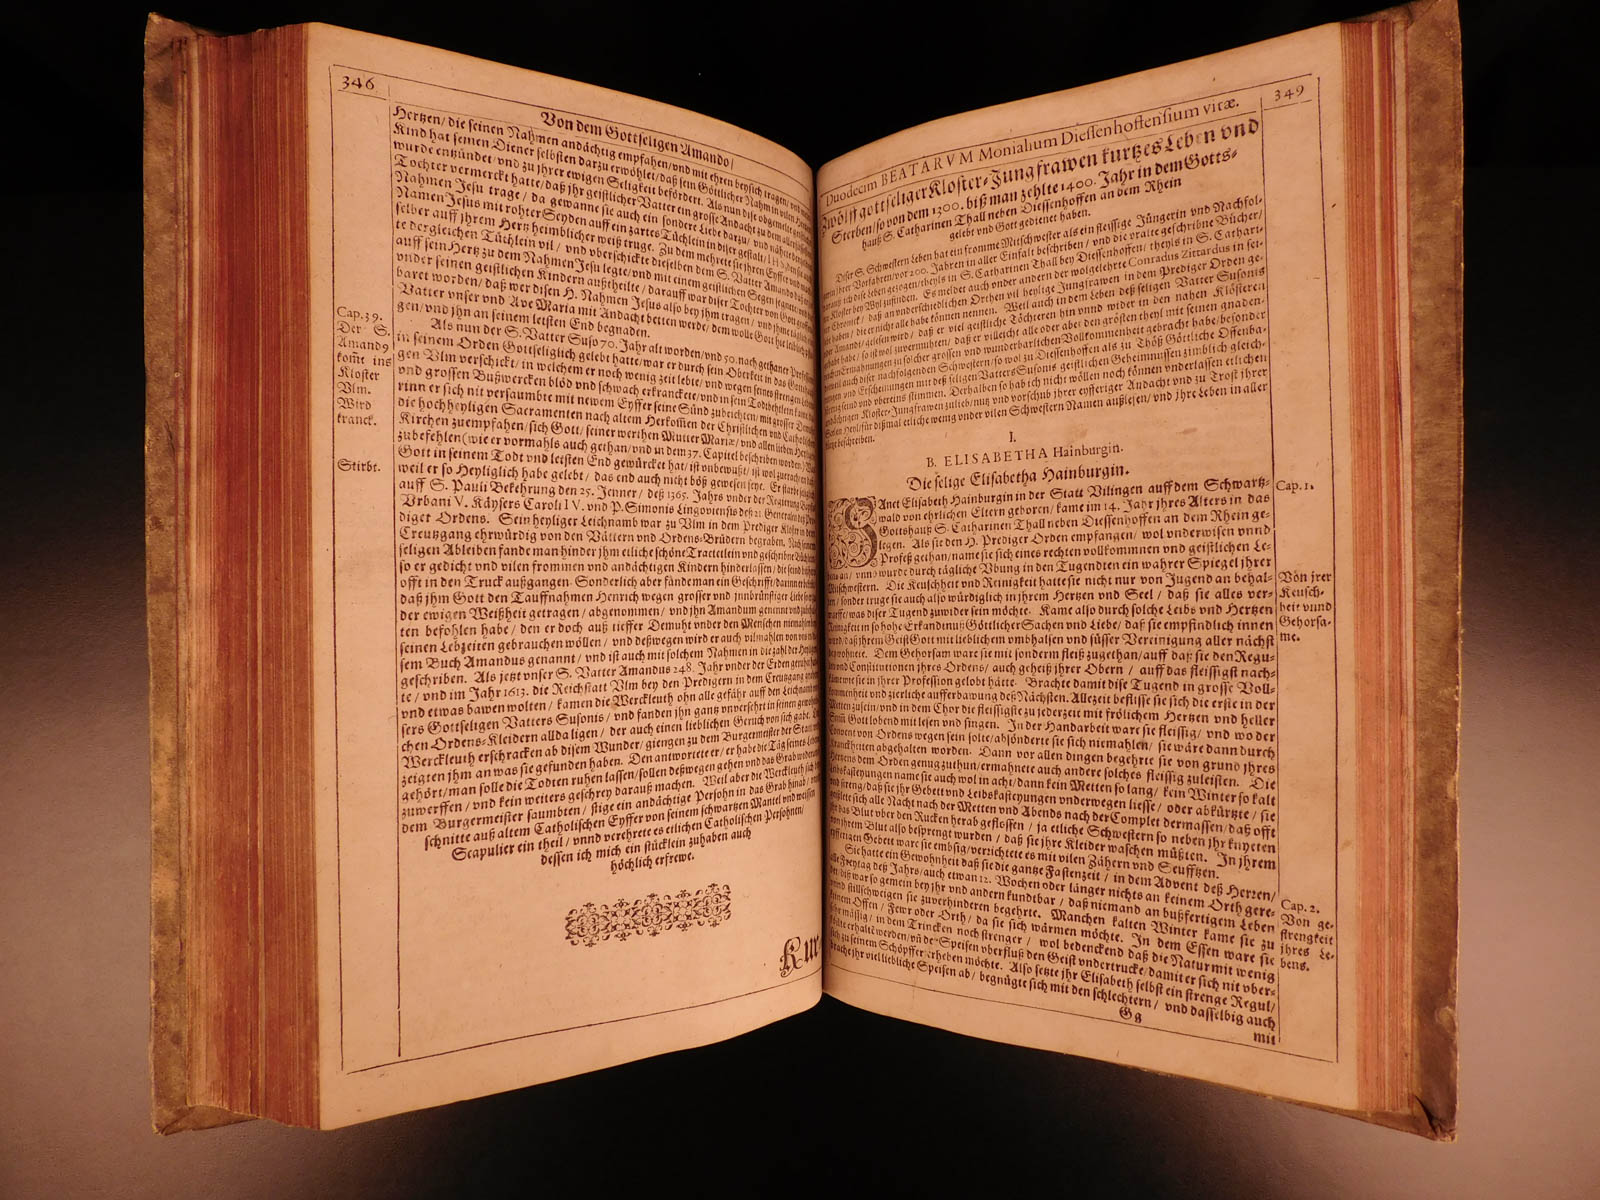 346
Von dem Gottseligen Amando/
Hertzen/ die seinen Nahmen andächtig empfahen/ und mit ehren bey sich tragen/
Kind hat seinen Diener selbsten darzu erwöhlet/ daß sein Göttlicher Nahm in vilen
wurde entzündet/ und zu jhrer ewigen Seligkeit befördert. Als nun dise obgemelte
Tochter vermerckt hatte/ daß jhr geistlicher Vatter ein grosse Andacht zu dem
Nahmen Jesu trage/ da gewanne sie auch ein sondere Liebe darzu/ und
Namen Jesus mit rohter Seyden auff ein zartes Tüchlein in diser gestalt/ IHS/
selber auff jhrem Hertz heimblicher weiß truge. Zu dem mehrete sie jhren Eyffer
te dergleichen Tüchlein vil/ und uberschickte dieselben dem S. Vatter Amando
auff sein Hertz zu dem Nahmen Jesu legte/ und mit einem geistlichen Segen
under seinen geistlichen Kindern außtheilte/ darauff war diser Tochter von Gott
baret worden/ daß wer disen H. Nahmen Jesus also bey jhm tragen/ und jhme
Vatter unser und Ave Maria mit Andacht betten werde/ dem wolle Gott hie
gen/ und jhn an seinem letsten End begnaden.
Cap. 39.
Der S.
Amand9
kom̃t ins
Kloster
Vlm.
Wird
kranck.
Als nun der S. Vatter Suso 70. Jahr alt worden/ und 50. nach gethaner Profession
in seinem Orden Gottseliglich gelebt hatte/ war er durch sein Oberkeit in das
gen Vlm verschickt/ in welchem er noch wenig zeit lebte/ und wegen seines strengen
und grossen Bußwercken blöd und schwach erkranckete/ und in sein Todtbethlein
rinn er sich nit versaumbte mit newem Eyffer seine Sünd zubeichten/ mit grosser
die hochheyligen Sacramenten nach altem Herkom̃en der Christlichen und Catholischen
Kirchen zuempfahen/ sich Gott/ seiner werthen Mutter Mariæ/ und allen lieben
zubefehlen (wie er vormahls auch gethan/ und in dem 37. Capitel beschriben worden.)
Gott in seinem Todt und letsten End gewürcket hat/ ist unbewußt/ ist wol
Stirbt.
weil er so Heyliglich habe gelebt/ das end auch nicht böß gewesen seye. Er starbe
auff S. Pauli Bekehrung den 25. Jenner/ deß 1365. Jahrs under der Regierung
Vrbani V. Käysers Caroli IV. und P. Simonis Lingoviensis deß 21. Generalen
diger Ordens. Sein heyliger Leichnamb war zu Vlm in dem Prediger Kloster in dem
Creutzgang ehrwürdig von den Vättern und Ordens-Brüdern begraben. Nach seinem
seligen Ableiben fande man hinder jhm etliche schöne Tractetlein und geschribne
so er gedicht und vilen frommen und andächtigen Kindern hinderlassen/ die seind
offt in den Truck außgangen. Sonderlich aber fände man ein Geschrifft/ darinn
daß jhm Gott den Tauffnahmen Henrich wegen grosser und innbrünstiger Liebe
der ewigen Weißheit getragen/ abgenommen/ und jhn Amandum genennt
ten befohlen habe/ den er doch auß tieffer Demuht under den Menschen niemahlen
seinen Lebzeiten gebrauchen wöllen/ und deßwegen wird er auch vilmahlen von
sem Buch Amandus genannt/ und ist auch mit solchem Nahmen in die zahl der Heyligen
geschriben. Als jetzt unser S. Vatter Amandus 248. Jahr under der Erden geruhet
te/ und im Jahr 1613. die Reichstatt Vlm bey den Predigern in dem Creutzgang
und etwas bawen wolten/ kamen die Werckleuth ohn alle gefähr auff den Leichnamb
sers Gottseligen Vatters Susonis/ und fanden jhn gantz unversehrt in seinen
chen Ordens-Kleidern allda ligen/ der auch einen lieblichen Geruch von sich gabe. Die
Werckleuth erschracken ab disem Wunder/ giengen zu dem Burgermeister der Statt
zeigten jhm an was sie gefunden haben. Den antwortet er/ er habe die Täg seines Lebens
gehört/ man solle die Todten ruhen lassen/ sollen deßwegen gehen und das Grab widerumb
zuwerffen/ und kein weiters geschrey darauß machen. Weil aber die Werckleuth sich
dem Burgermeister saumbten/ stige ein andächtige Persohn in das Grab hinab/ und
schnitte auß altem Catholischen Eyffer von seinem schwartzen Mantel und weissen
Scapulier ein theil/ unnd verehrete es etlichen Catholischen Persohnen/
dessen ich mich ein stücklein zuhaben auch
höchlich erfrewe.
Kur-
349
Duodecim BEATARVM Monialium Diessenhoffensium vitæ.
Zwölff gottseliger Kloster-Jungfrawen kurtzes Leben und
Sterben/ so von dem 1300. biß man zehlte 1400. Jahr in dem Gotts-
hauß S. Catharinen Thall neben Diessenhoffen an dem Rhein
gelebt und Gott gedienet haben.
Diser S. Schwestern Leben hat ein fromme Mitschwester als ein fleissige Jüngerin und Nachfol-
gerin jhrer Vorfahren/ vor 200. Jahren in aller Einfalt beschriben/ und die uralte geschribne Bücher/
auß ich dise Leben gezogen/ theyls in S. Catharinen Thall bey Diessenhoffen/ theyls in S. Cathari-
ner Kloster bey Wyl zufinden. Es meldet auch under andern der wolgelehrte Conradus Zittardus in sei-
ner Chronick/ daß an underschidlichen Orthen vil heylige Jungfrawen in dem Prediger Orden ge-
lebt haben/ die er nicht alle habe können nennen. Weil auch in dem Leben deß seligen Vatter Susonis
oder Amandi/ gelesen wird/ daß er vil geistliche Töchteren hin unnd wider in den nahen Klöstern
gehabt habe/ so ist wol zuvermuhten/ daß er villeicht alle oder aber den grösten theyl mit seinen gnaden-
reichen Ermahnungen zu solcher grossen und wunderbarlichen Vollkommenheit gebracht habe/ besonder
weil auch diser nachfolgenden Schwestern/ so wol zu Diessenhoffen als zu Thöß Göttliche Offenba-
rungen und Erscheinungen mit deß seligen Vatters Susonis geistlichen Geheimnussen zimblich gleich-
förmig seind und ubereins stimmen. Derhalben so hab ich nicht wöllen noch können underlassen etlichen
andächtigen Kloster-Jungfrawen zulieb/ nutz und vorschub jhrer eyfferiger Andacht und zu Trost jhrer
Seelen Heyl/ für dißmal etliche wenig under vilen Schwestern Namen außlesen/ und jhre Leben in aller
kürtze beschreiben.
I.
B. ELISABETHA Hainburgin.
Die selige Elisabetha Hainburgin.
Cap. 1.
SAnct Elisabeth Hainburgin in der Statt Vilingen auff dem Schwartz-
wald von ehrlichen Eltern geboren/ kame im 14. Jahr jhres Alters in das
Gottshauß S. Catharinen Thall neben Diessenhoffen an dem Rhein ge-
legen. Als sie den H. Prediger Orden empfangen/ wol underwisen unnd
Profeß gethan/ name sie sich eines rechten vollkommnen und geistlichen Le-
bens an/ unnd wurde durch tägliche Vbung in den Tugendten ein wahrer Spiegel jhrer
Mitschwestern. Die Keuschheit und Reinigkeit hatte sie nicht nur von Jugend an behal-
ten/ sonder truge sie auch also würdiglich in jhrem Hertzen und Seel/ daß sie alles ver-
warffe/ was diser Tugend zuwider sein möchte. Kame also durch solche Leibs und Hertzen
Reinigkeit in so hohe Erkandtnuß Göttlicher Sachen und Liebe/ daß sie empfindlich innen
wurd/ daß jhrem Geist Gott mit lieblichem umbhalsen und süsser Vereinigung aller nächst
beywohnete. Dem Gehorsam ware sie mit sonderm fleiß zugethan/ auff daß sie den Regu-
len und Constitutionen jhres Ordens/ auch geheiß jhrer Obern/ auff das fleissigst nach-
käme wie sie in jhrer Profession gelobt hätte. Brachte damit dise Tugend in grosse Voll-
kommenheit und zierliche aufferbawung deß Nächsten. Allezeit beflisse sie sich die erste in der
Metten zusein/ und in dem Chor die fleissigste zu jederzeit mit frölichem Hertzen und heller
Stim̃ Gott lobend mit lesen und singen. In der Handarbeit ware sie fleissig/ und wo der
Convent von Ordens wegen sein solte/ absönderte sie sich niemahlen/ sie wäre dann durch
Kranckheiten abgehalten worden. Dann vor allen dingen begehrte sie von grund jhres
Hertzens dem Orden genug zuthun/ ermahnete auch andere solches fleissig zuleisten. Die
Leibskasteyungen name sie auch wol in acht/ dann kein Metten so lang/ kein Winter so kalt
und streng/ daß sie jhr Gebett und Leibskasteyungen underwegen liesse/ oder abkürtzte/ sie
geißlete sich alle Nacht nach der Metten und Abends nach der Complet dermassen/ daß offt
jhr das Blut uber den Rucken herab geflossen/ ja etliche Schwestern so neben jhr knyeten
von jhrem Blut also besprengt wurden/ daß sie jhre Kleider waschen müßten. In jhrem
eyfferigen Gebett ware sie embsig/ verrichtete es mit vilen Zähern und Seufftzen.
Von jrer
Keusch-
heit unnd
Gehorsa-
me.
Sie hatte ein Gewohnheit daß sie die gantze Fastenzeit/ in dem Advent deß Herren/
alle Freytag deß Jahrs/ auch etwan 12. Wochen oder länger nichts an keinem Orth gere-
det/ diß war so gemein bey jhr und andern kundtbar/ daß niemand an bußfertigem Leben
und stillschweigen sie zuverhinderen begehrte. Manchen kalten Winter kame sie zu
keinem Offen/ Fewr oder Orth/ da sie sich wärmen möchte. In dem Essen ware sie
sehr mässig/ in den Trincken noch strenger/ wol bedenckend daß die Natur mit wenig
köndte erhalte werden/ uñ de Speisen uberfluß den Geist undertrucke/ damit er sich nit uber-
sich zu seinem Schöpffer erheben möchte. Also setzte jhr Elisabeth selbst ein strenge Regul/
brache jhr viel liebliche Speisen ab/ begnügte sich mit den schlechtern/ und dasselbig auch
Cap. 2.
Von ge-
strengkeit
jhres Le-
bens.
Gg
mit